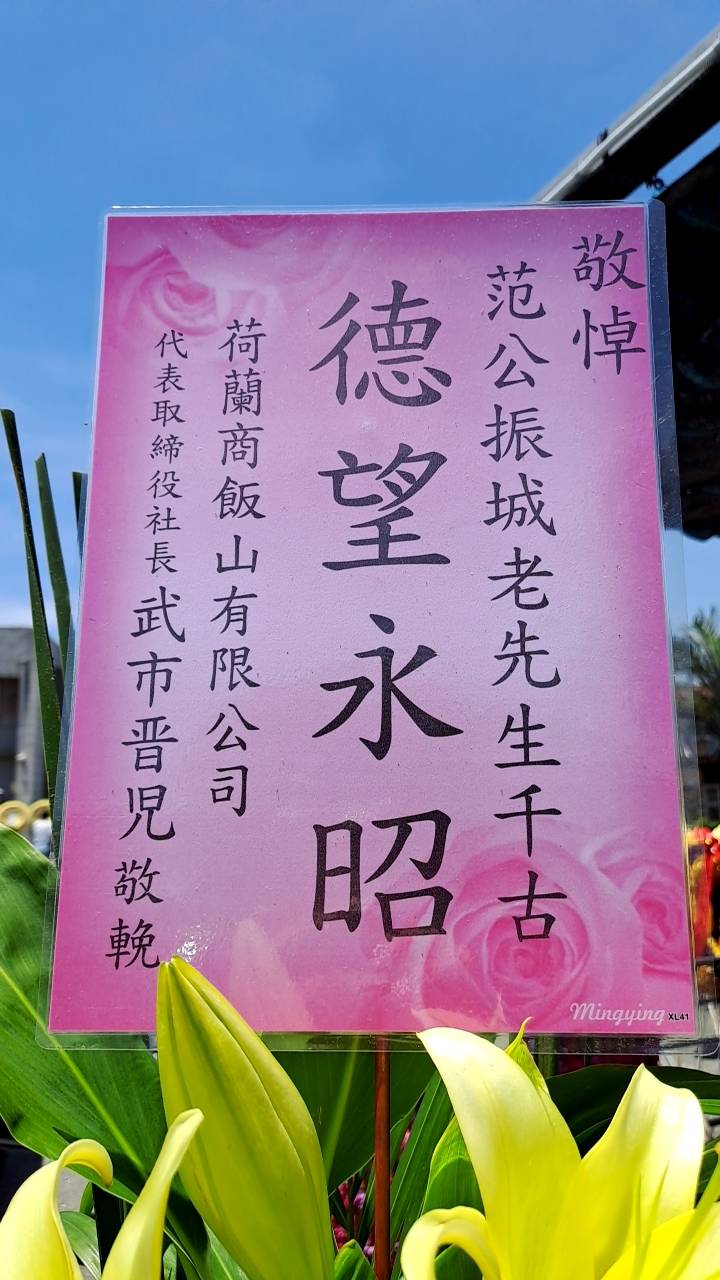 敬悼
范公振城老先生千古
德望永昭
荷蘭商飯山有限公司
代表取締役社長武市晋児敬輓
Mingying XL41